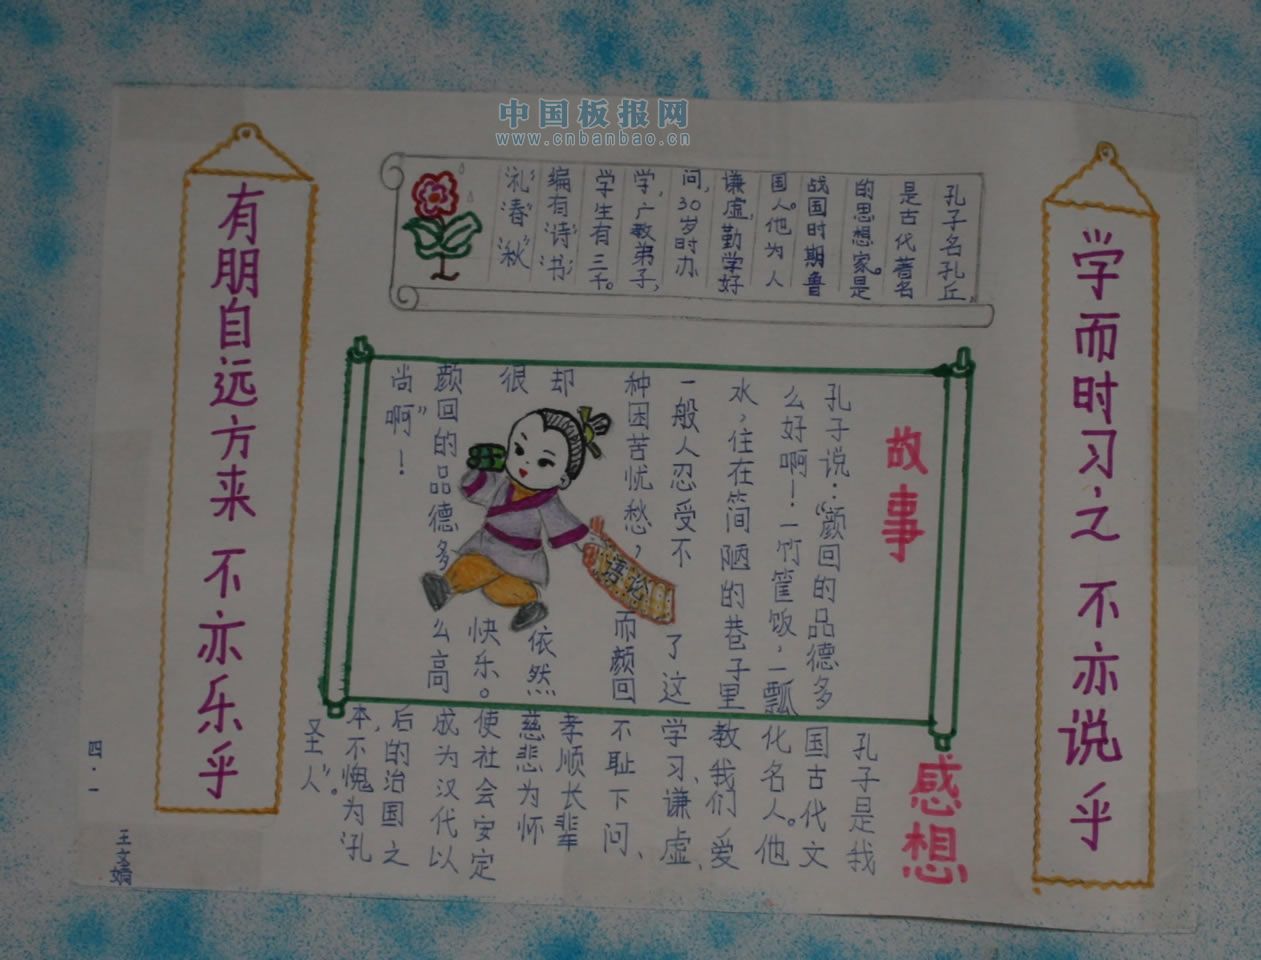 中国板报网
www.cnbanbao.cn
学而时习之 不亦说乎
孔子名孔丘,
是古代著名
的思想家。是
战国时期鲁
国人。他为人
谦虚,勤学好
问,30岁时办
学,广教弟子,
学生有三千。
编有《诗》《书》
《礼》《春秋》
故事
孔子说:“颜回的品德多
么好啊!一竹筐饭,一瓢
水,住在简陋的巷子里
一般人忍受不了这
种困苦忧愁,而颜回
却依然
很快乐。
颜回的品德多么高
尚啊”!
论语
感想
孔子是我
国古代文
化名人。他
教我们爱
学习、谦虚、
不耻下问、
孝顺长辈
慈悲为怀
使社会安定
成为汉代以
后的治国之
本,不愧为“孔
圣人”。
有朋自远方来 不亦乐乎
四·一
王文娟